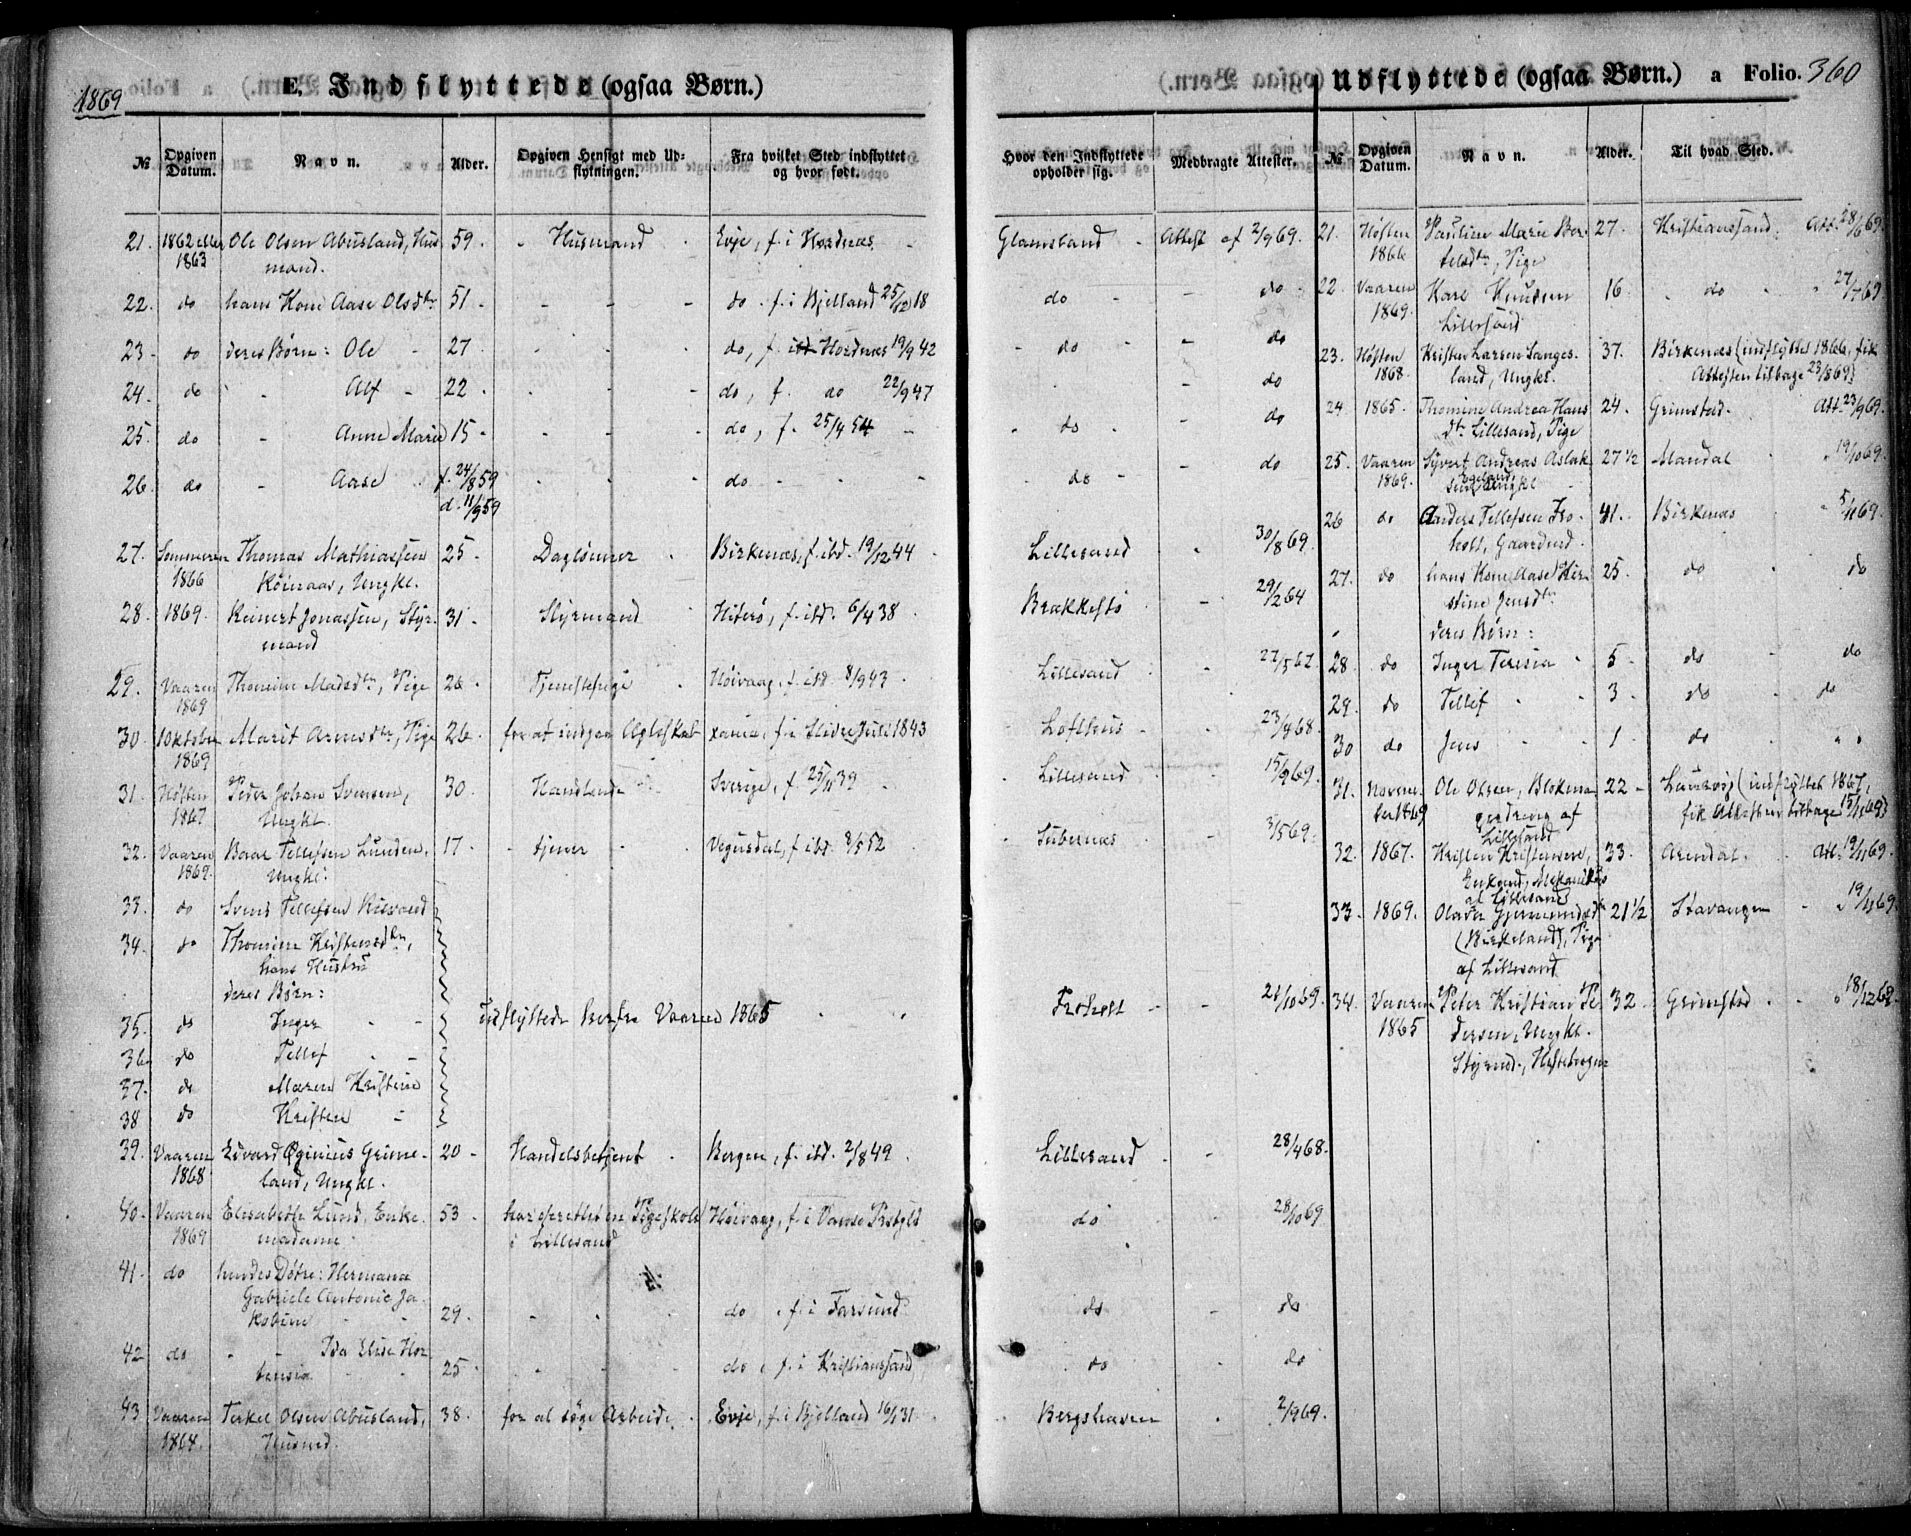 1869
E. Indflyttede (ogsaa Børn.)
№ Opgiven Datum. Navn. Alder. Opgiven Hensigt med Udflytningen. Fra hvilket Sted indflyttet og hvor født.
Hvor den Indflyttede opholder sig. Medbragte Attester.
21. 1862 eller 1863 Ole Olsen Abusland, Husmand. 59. Husmand Evje, f. i Hordnæs Glamsland Attest af 2/9 69.
22. do hans Kone Aase Olsdtr 51 - - do. f. i Bjelland 25/12 18 do - do
23 do deres Børn: Ole 27 - - do, f. Hordnæs 19/9 42 do - do
24. do - Alf 22 - - do, f. do 22/9 47 - do
25. do - Anne Marie 15 - - do, f. 25/9 54 do - do
26. do - Aase f. 24/8 59 d. 11/9 59 - - do - do - do
27. Sommeren 1866 Thomas Mathiassen Køinaas, Ungkl. 25 Daglønner Birkenæs, f. ibd. 19/12 44 Lillesand - 30/8 69
28. 1869. Reinert Jonassen, Styrmand 31 Styrmand Hiterø, f. ibd. 6/4 38 Brækkestø - 29/2 64
29. Vaaren 1869 Thomine Madsdtr, Pige 26 Tjenestepige Høivaag, f. ibd 8/9 43 Lillesand - 27/5 67
30. Oktober 1869 Marit Arnesdtr, Pige 26. for at indgaa Ægteskab xania, f. i Slidre Juli 1843 Lofthus - 23/9 68
31. Høsten 1867 Peder Johan Svensen, Ungkl. 30. Handlende Sverige, f. 25/11 39 Lillesand 15/9 69
32. Vaaren 1869. Baar Tellefsen Lunden, Ungkl. 17 tjener Vegusdal, f ibd. 8/5 52 Tubernæs - 3/5 69
33. do Svend Tellefsen
34. do Thomine Kristensdtr, hans Hustru
deres Børn:
35. do Inger - - udflyttede herfra Vaaren 1865 Froholt - 21/10 69
36 do Tellef - -
37. do Maren Kristine
38 do Kristen -
39. Vaaren 1868 Edvard Øginius Grimeland, Ungkl. 20 Handelsbetjent Bergen, f. ibd. 2/8 49 Lillesand - 28/4 68
40. Vaaren 1869 Elisabeth Lund, Enkemadame 53 har oprettet en Pigeskole i Lillesand Høivaag, f. i Vanse Prstgld do 28/10 69
41. do hendes Døtre: Hermana Gabriele Antonie Jakobine 29. - do, f. i Farsund do - do
42 do - Ida Elise Hortensia 25 - do, f. i Kristianssand do do
43 Vaaren 1868. Terkel Olsen Abusland, Husmd. 38. for at søge Arbeide Evje, f. i Bjelland 16/1 31 Bergshaven - 2/9 69.
Udflyttede (ogsaa Børn.) a Folio. 360
№ Opgiven Datum. Navn. Alder. Til hvad Sted.
21. Høsten 1866 Pauline Marie Bertelsdtr, Pige 27. Kristianssand. Att. 28/6 69
22. Vaaren 1869. Karl Knudsen Lillesand 16 do 27/7 69
23. Høsten 1868. Kristen Larsen Langesland, Ungkl. 37. Birkenæs (indflyttet 1866, fik Attesten tilbage 23/8 69)
24. 1865. Thomine Andrea Hansdtr Lillesand, Pige 24. Grimstad. Att. 23/9 69.
25. Vaaren 1869. Syvert Andreas Aslaksen Ungkl. 27 1/2 Mandal 19/10 69.
26 do Anders Tellefsen Froholt, Gaardmd. 41. Birkenæs 5/11 69.
27. do hans Kone Aase Kirstine Jensdtr 25. do do
deres Børn:
28. do Inger Teresia 5 - do do
29. do Tellef 3 do do
30 do Jens - - 1 do "
31. November 1869 Ole Olsen, Blokmagerdreng af Lillesand 22 - Landvig (indflyttet 1867, fik Attesten tilbage 15/11 69)
32. 1867. Kristen Kristensen, Enkemd, Mekanikus af Lillesand 33. Arendal. Att. 19/11 69.
33. 1869. Olava Gjermundsdtr (Birkeland), Pige af Lillesand 21 1/2 Stavanger 19/11 69.
34. Vaaren 1865 Peter Kristian Pedersen, Ungkl. Styrmd., 32 Grimstad 18/12 68.